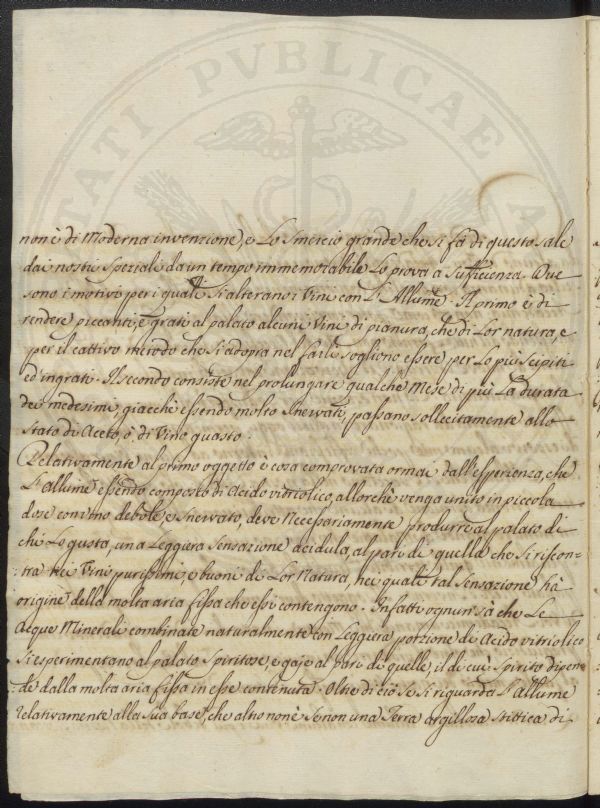 TATI PVBLICAE
non è di Moderna invenzione, e Lo Smercio grande che si fà di questo sale
dai nostri Speziali da un tempo immemorabile Lo prova a Sufficienza. Due
sono i motivi per i quali Si alterano i Vini con L'Allume. Il primo è di
rendere piccanti, e grati al palato alcuni Vini di pianura, che di Lor natura, e
per il cattivo metodo che Si adopra nel farli Sogliono essere per Lo più Scipiti
ed ingrati. Il Secondo consiste nel prolungare qualche Mese di più La durata
dei medesimi, giacchè essendo molto Snervati, passano sollecitamente allo
Stato di Aceto, ò di Vino guasto.
Relativamente al primo oggetto è cosa comprovata ormai dall'esperienza, che
L'allume essendo composto di Acido vitriolico, allorchè venga unito in piccola
dose con vino debole, e Snervato, deve Necessariamente produrre al palato di
chi Lo gusta, una Leggiera Sensazione acidula, al pari di quella che Si riscon-
:tra nei Vini purissimi, e buoni di Lor Natura, nei quali tal Sensazione hà
origine della molta aria fissa che essi contengono. Infatti ognun sà che Le
Acque Minerali combinate naturalmente con Leggiera porzione di Acido vitriolico
Si esperimentano al palato Spiritose, e gaje al pari di quelle, il di cui Spirito dipen-
:de dalla molta aria fissa in esse contenuta. Oltre di ciò se Si riguarda L'allume
relativamente alla Sua base, che altro non è Se non una Terra argillosa Stittica di-